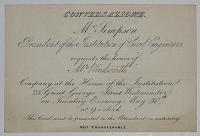 CONVERSAZIONE.
Mr. Simpson
President of the Institution of Civil Engineers
requests the honor of
Mr.
Company at the House of the Institution
25 Great George Street Westminster
on Tuesday Evening May 30th
at 9 o'clock
This Card must be presented to the Attendant on entering
NOT TRANSFERABLE.